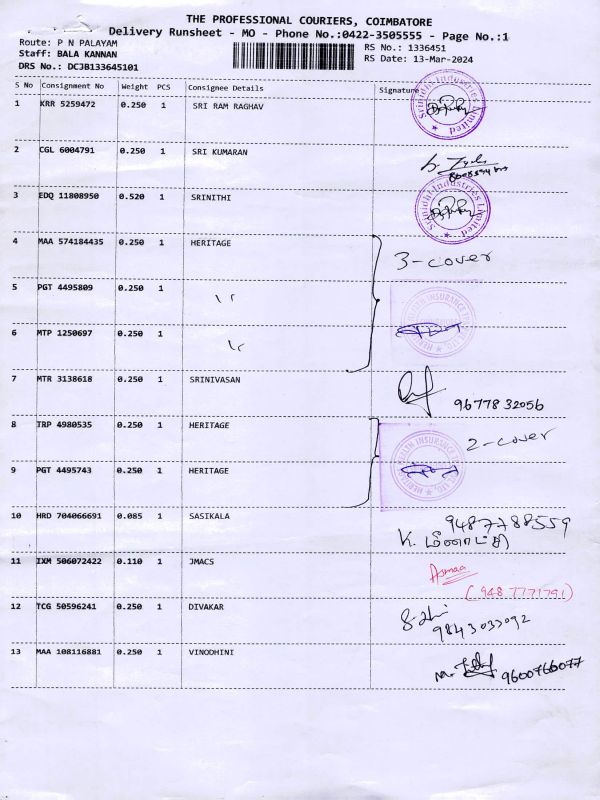 THE PROFESSIONAL COURIERS, COIMBATORE
Delivery Runsheet - MO - Phone No.:0422-3505555 - Page No.:1
Route: P N PALAYAM
Staff: BALA KANNAN
DRS No.: DCJB133645101
RS No.: 1336451
RS Date: 13-Mar-2024
S No Consignment No Weight PCS Consignee Details Signature
1 KRR 5259472 0.250 1 SRI RAM RAGHAV
Srinidhi Industries Limited
2 CGL 6004791 0.250 1 SRI KUMARAN
3 EDQ 11808950 0.520 1 SRINITHI
Srinidhi Industries Limited
4 MAA 574184435 0.250 1 HERITAGE
3-cover
5 PGT 4495809 0.250 1 〃
HEALTH INSURANCE
6 MTP 1250697 0.250 1 〃
7 MTR 3138618 0.250 1 SRINIVASAN
96778 32056
8 TRP 4980535 0.250 1 HERITAGE
2-cover
9 PGT 4495743 0.250 1 HERITAGE
HEALTH INSURANCE
10 HRD 704066691 0.085 1 SASIKALA
9487788559
K. மீனாட்சி
11 IXM 506072422 0.110 1 JMACS
Asmaa
(9487771791)
12 TCG 50596241 0.250 1 DIVAKAR
9843033092
13 MAA 108116881 0.250 1 VINODHINI
9600766077